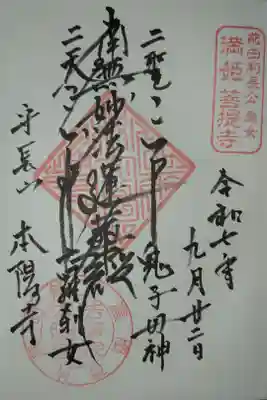 前田利長公
満姫 菩提寺
令和七年九月廿二日
二聖 鬼子母神
南無妙法蓮華経
二天 十羅刹女
平長山 本陽寺